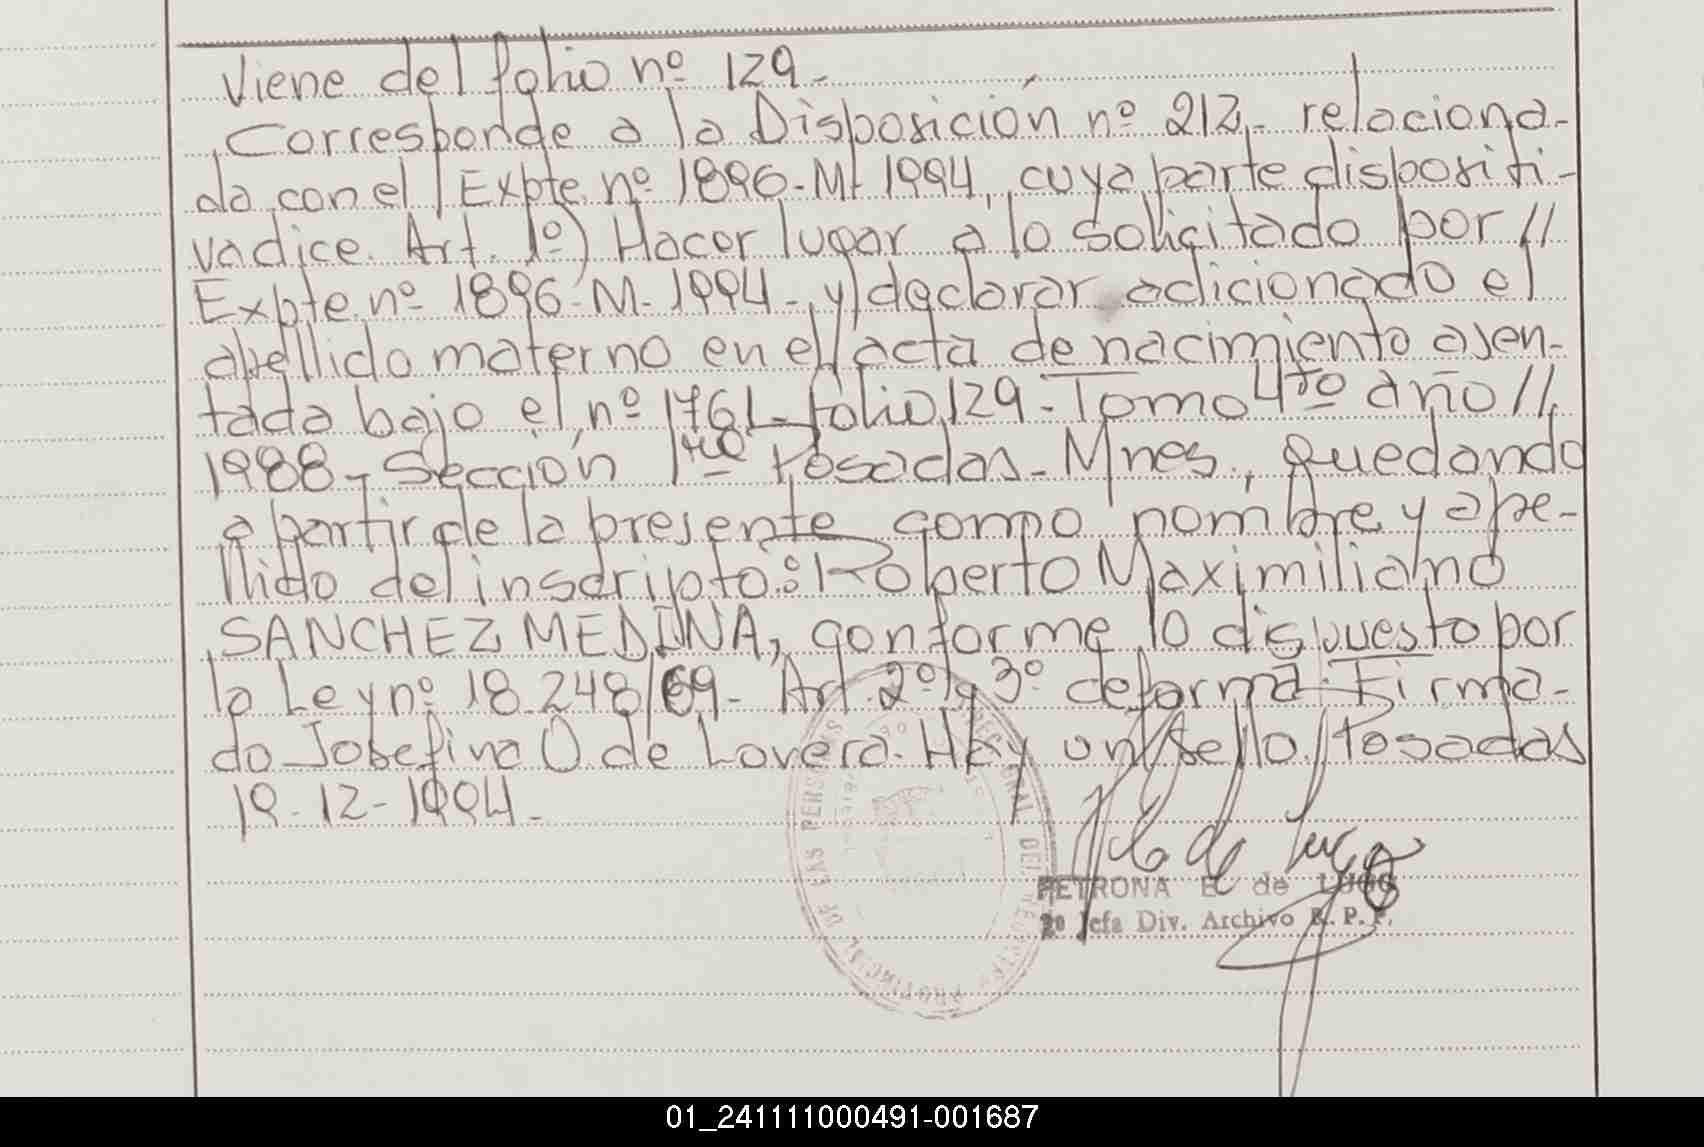 Viene del folio nº 129.-
Corresponde a la Disposición nº 212.- relaciona-
da con el Expte. nº 1896-M- 1994, cuya parte dispositi-
va dice. Art. 1º) Hacer lugar a lo solicitado por //
Expte. nº 1896-M-1994- y declarar adicionado el
apellido materno en el acta de nacimiento asen-
tada bajo el nº 1761- folio 129- Tomo 4to año //
1988- Sección 1ra Posadas- Mnes., quedando
a partir de la presente como nombre y ape-
llido del inscripto: Roberto Maximiliano
SANCHEZ MEDINA, conforme lo dispuesto por
la Ley nº 18.248/69- Art. 2º y 3º de forma. Firma-
do Josefina O de Lovera. Hay un sello. Posadas
19-12-1994.-
PETRONA E. de LUGO
2º Jefa Div. Archivo R. P. P.
PROVINCIAL DE LAS PERSONAS
01_241111000491-001687